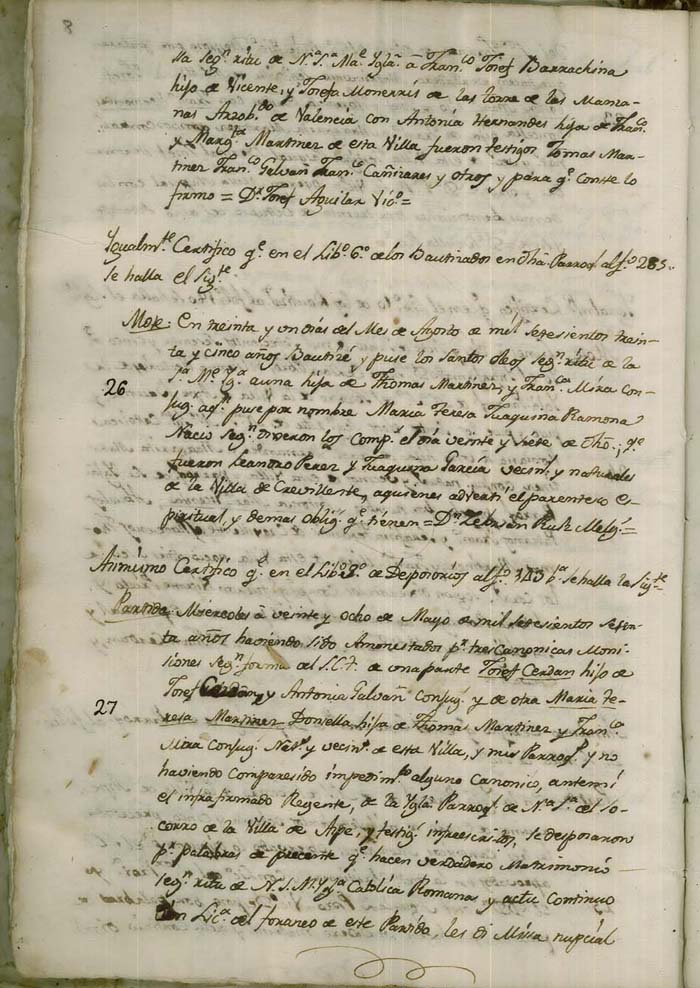 8
lla segn ritu de Na. Sa. Me. Ygla. a Franco. Josef Barrachina
hijo de Vicente, y Josefa Monerris de las torre de las Manza-
nas Arzobdo. de Valencia con Antonia Hernandes hija de Franco.
y Margta. Martinez de esta Villa fueron testigos Tomas Mar-
tinez Franco. Galvañ Franco. Cañizares y otros y para qe. conste lo
firmo = Dr. Josef Aguilar Vico. =
Ygualmte. Certifico qe. en el Libo. 6o. de los Bautizados en dha. Parroql. al fo. 285..
se halla el sigte.
Mote: En treinta y un dias del Mes de Agosto de mil setesientos trein-
ta y cinco años Bautizé y puse los santos oleos segn. ritu de la
26
Sa. Me. Yga. a una hija de Thomas Martinez, y Franca. Mira con-
sug. aqn. puse por nombre Maria Teresa Juaquina Ramona
Nacio segn. dixeron los Comps. el dia veinte y siete de dho., qe.
fueron Leandro Perez y Juaquina Garcia vecins. y naturales
de la Villa de Crevillente, aquienes adverti el parentesco es-
piritual, y demas obligs. qe. tienen = Dn. Ruiz =
Asimismo Certifico qe. en el Libo. 3o. de Desposorios al fo. 143 ba. se halla la sigte.
Partida: Miercoles a veinte y ocho de Mayo de mil setesientos seten-
ta años haviendo sido Amonestados pr. tres Canonicas Moni-
siones segn. forma del S.C.T. de una parte Josef Cerdan hijo de
27
Josef Cerdan, y Antonia Galvañ Consug. y de otra Maria Te-
resa Martinez Donsella hija de Thomas Martinez y Franca.
Mira Consug. Nats. y vecins. de esta Villa, y mis Parroqs. y no
haviendo comparesido impedimto. alguno Canonico, antemi
el infrafirmado Regente, de la Ygla. Parroql. de Na. Sa. del So-
corro de la Villa de Aspe, y testigs. infraescritos, se desposaron
pr. palabras de precente qe. hacen verdadero Matrimonio
segn. ritu de N.S.M. Yga. Catolica Romana y actu continuo
con Lica. del foraneo de este Partido, les di Missa nupcial